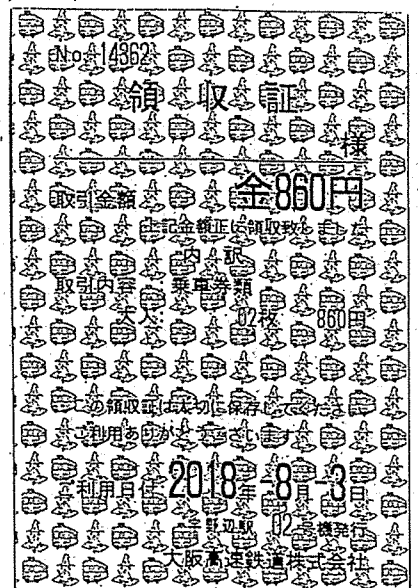 No. 14362
領収証
様
取引金額 金860円
上記金額正に領収致しました
内訳
取引内容 乗車券類
大人 02枚 860円
この領収証は大切に保存してください
ご利用ありがとうございます
利用日付 2018年-8月-3日
宇野辺駅 02号機発行
大阪高速鉄道株式会社